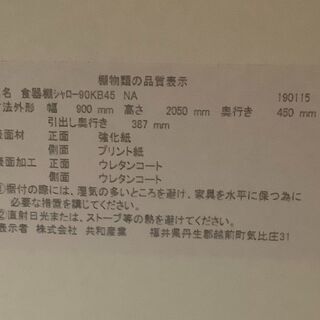 棚物類の品質表示
名 食器棚シャロー90KB45 NA 190115
法外形 幅 900 mm 高さ 2050 mm 奥行き 450 mm
引出し奥行き 387 mm
面材 正面 強化紙
側面 プリント紙
面加工 正面 ウレタンコート
側面 ウレタンコート
①据付の際には、湿気の多いところを避け、家具を水平に保つ為に
必要な措置を講じてください。
②直射日光または、ストーブ等の熱を避けてください。
表示者 株式会社 共和産業 福井県丹生郡越前町気比庄31